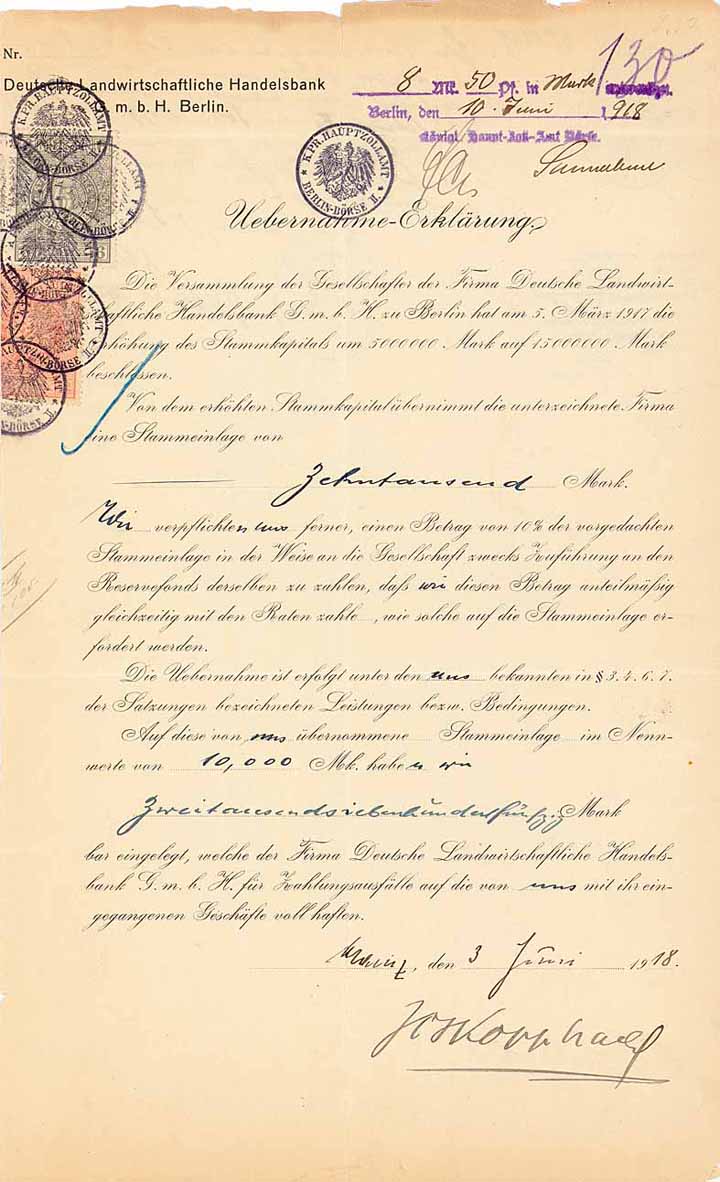 Nr.
130
Deutsche Landwirtschaftliche Handelsbank
m. b. H. Berlin.
8 Mk. 50 Pf. in Mark
Berlin, den 10. Juni 1918
Königl. Haupt-Zoll-Amt Börse.
KPR. HAUPTZOLLAMT
* BERLIN-BÖRSE II. *
Uebernahme-Erklärung.
Die Versammlung der Gesellschafter der Firma Deutsche Landwirt-
schaftliche Handelsbank G. m. b. H. zu Berlin hat am 5. März 1917 die
rhöhung des Stammkapitals um 5000000 Mark auf 15000000 Mark
beschlossen.
Von dem erhöhten Stammkapital übernimmt die unterzeichnete Firma
eine Stammeinlage von
Zehntausend Mark.
Wir verpflichten uns ferner, einen Betrag von 10% der vorgedachten
Stammeinlage in der Weise an die Gesellschaft zwecks Zuführung an den
Reservefonds derselben zu zahlen, daß wir diesen Betrag anteilmäßig
gleichzeitig mit den Raten zahle, wie solche auf die Stammeinlage er-
fordert werden.
Die Uebernahme ist erfolgt unter den uns bekannten in § 3. 4. 6. 7.
der Satzungen bezeichneten Leistungen bezw. Bedingungen.
Auf diese von uns übernommene Stammeinlage im Nenn-
werte von 10,000 Mk. haben wir
Zweitausendsiebenhundertfünfzig Mark
bar eingelegt, welche der Firma Deutsche Landwirtschaftliche Handels-
bank G. m. b. H. für Zahlungsausfälle auf die von uns mit ihr ein-
gegangenen Geschäfte voll haften.
Mainz, den 3 Juni 1918.